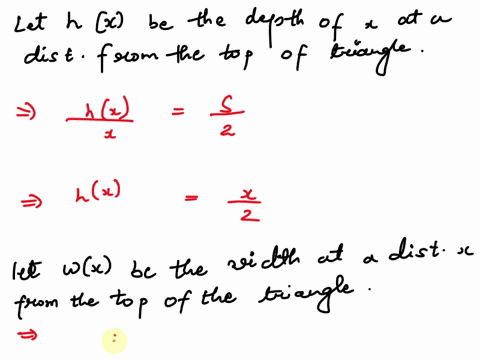 Let h(x) be the depth of x at a
dist. from the top of triangle.
⇒ h(x)/x = 5/2
⇒ h(x) = x/2
let w(x) be the width at a dist. x
from the top of the triangle.
⇒ :